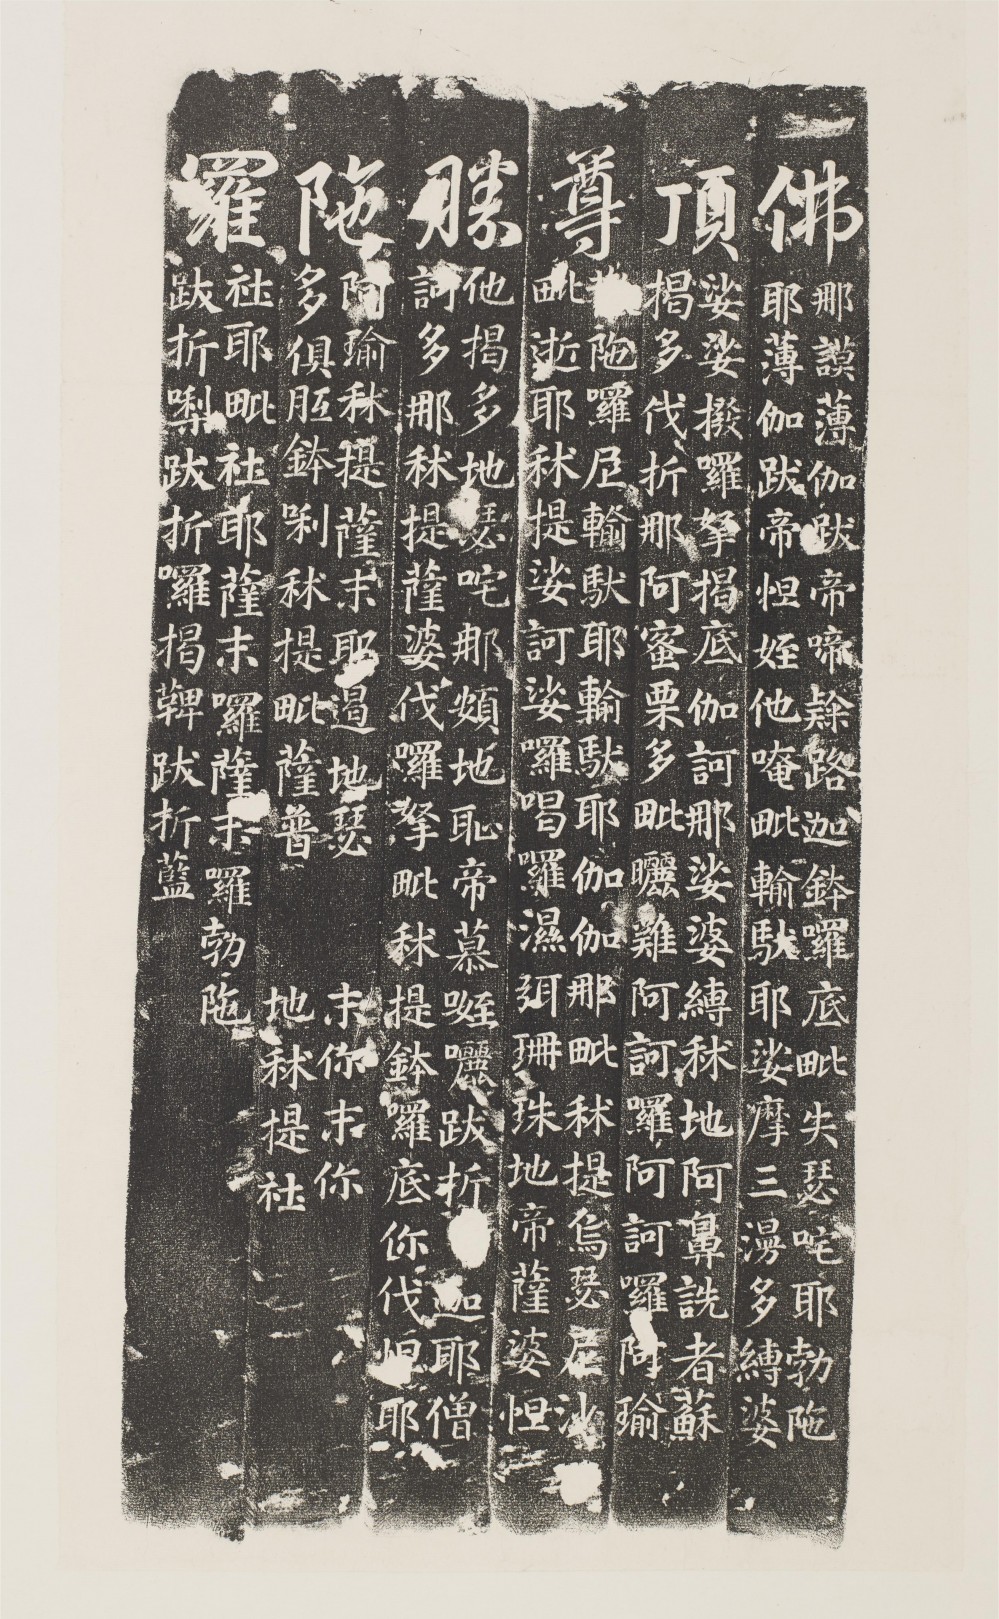 佛頂尊勝陁羅
那謨薄伽跋帝啼㘑路迦鉢囉底毗失瑟咤耶勃陁
耶薄伽跋帝怛姪他唵毗輸馱耶娑摩三漫多縛婆
娑娑撥囉拏揭底伽訶那娑婆縛秫地阿鼻詵者蘇
揭多伐折那阿蜜栗多毗曬雞阿訶羅阿訶囉阿瑜
陁囉尼輸馱耶輸馱耶伽伽那毗秫提烏瑟尼沙
毗逝耶秫提娑訶娑囉唱囉濕弭珊珠地帝薩婆怛
他揭多地瑟咤那頞地耻帝慕㘕囇跋折迦耶僧
訶多那秫提薩婆伐囉拏毗秫提鉢羅底你伐怛耶
阿瑜秫提薩末耶遏地瑟 末你末你
多俱胝鉢唎秫提毗薩普 地秫提社
社耶毗社耶薩末囉薩末羅勃陁
跋折㘑跋折囉揭鞞跋折藍